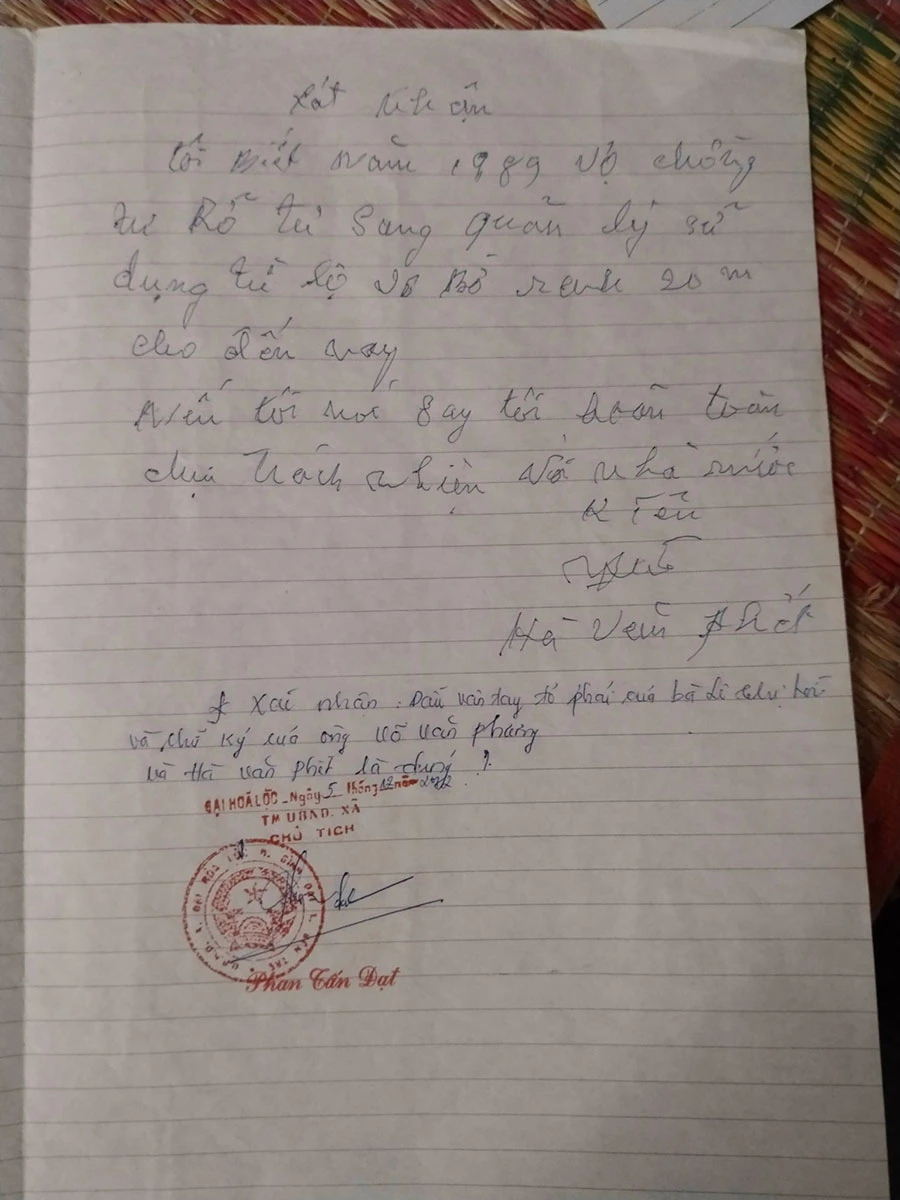 Xát Nhận
tôi Biết năm 1989 vợ chồng
tư Rỡ từ Sang quản lý sử
dụng từ lộ vô Bờ ranh 20 m
cho đến nay
Nếu tôi nói Say tôi hoàn toàn
chịu trách nhiện với nhà nước
K Tên
Hà Văn
* Xác nhận: Dấu vân tay trỏ phải của bà
và chữ ký của ông Võ Văn Phång
và Hà Văn Phết là đúng ./.
ĐẠI HOÀ LỘC - Ngày 5 tháng 12 năm
TM UBND. XÃ
CHỦ TỊCH
Phan Tấn Đạt